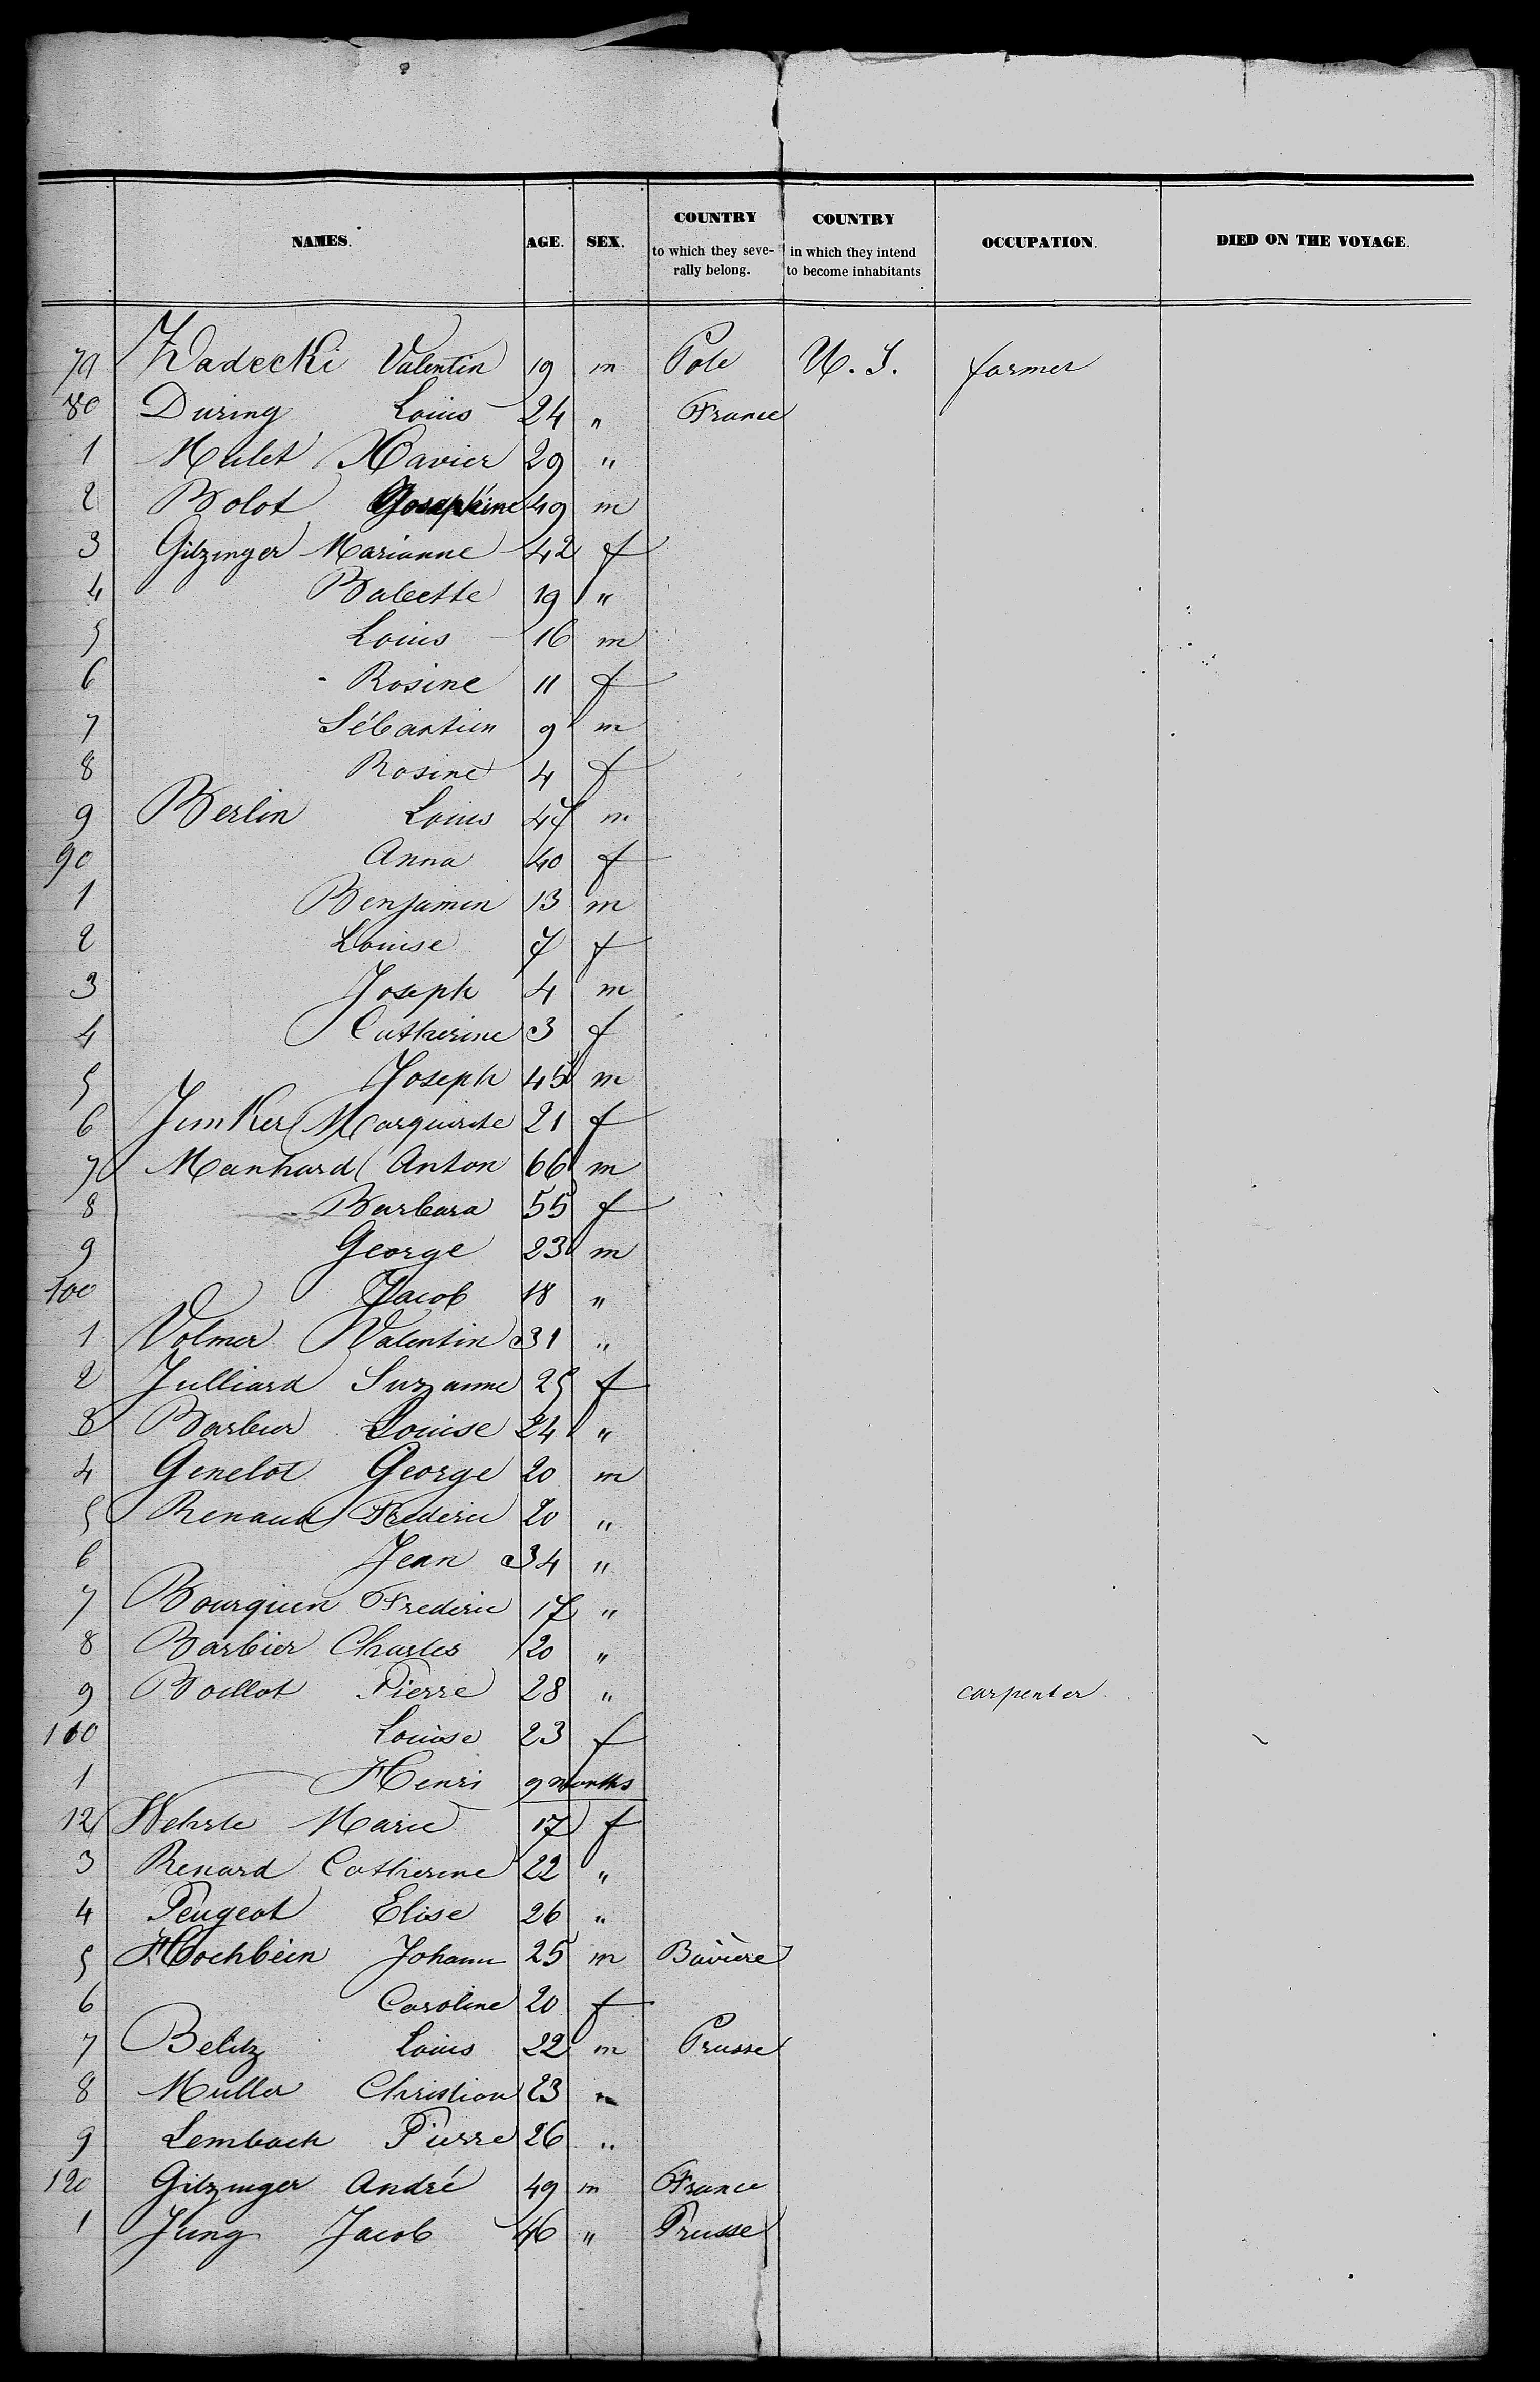 NAMES. AGE. SEX. COUNTRY to which they seve- rally belong. COUNTRY in which they intend to become inhabitants OCCUPATION. DIED ON THE VOYAGE.
79 Zradecki Valentin 19 m Pole U. S. farmer
80 During Louis 24 " France
1 Mulet Xavier 29 "
2 Bolot 49 m
3 Gitzinger Marianne 42 f
4 Babette 19 "
5 Louis 16 m
6 Rosine 11 f
7 Sébastien 9 m
8 Rosine 4 f
9 Berlin Louis 47 m
90 Anna 40 f
1 Benjamin 13 m
2 Louise 7 f
3 Joseph 4 m
4 Catherine 3 f
5 Joseph 45 m
6 Junker Marguirite 21 f
7 Manhard Anton 66 m
8 Barbara 55 f
9 George 23 m
100 Jacob 18 "
1 Volmer Valentin 31 "
2 Julliard Suzanne 25 f
3 Barbur Louise 24 "
4 Genelot George 20 m
5 Renaud Frederic 20 "
6 Jean 34 "
7 Bourquin Frederic 17 "
8 Barbier Charles 20 "
9 Boillot Pierre 28 " carpenter
110 Louise 23 f
1 Henri 9 months
12 Wehrle Marie 17 f
3 Renard Catherine 22 "
4 Peugeot Elise 26 "
5 Hochbein Johann 25 m Bavière
6 Caroline 20 f
7 Belitz Louis 22 m Prusse
8 Muller Christian 23 "
9 Lembach Pierre 26 "
120 Gitzinger André 49 m France
1 Jung Jacob 46 " Prusse